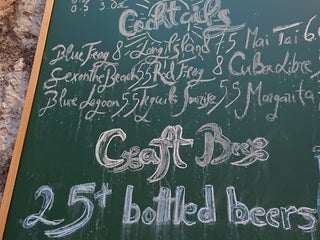 0.5 3.0z
Cocktails
Blue Frog 8 Long Island 7.5 Mai Tai 6
Sex on the Beach 5,5 Red Frog 8 Cuba Libre
Blue Lagoon 5,5 Tequila Sunrise 5,5 Margarita
Craft Beer
25+ bottled beers